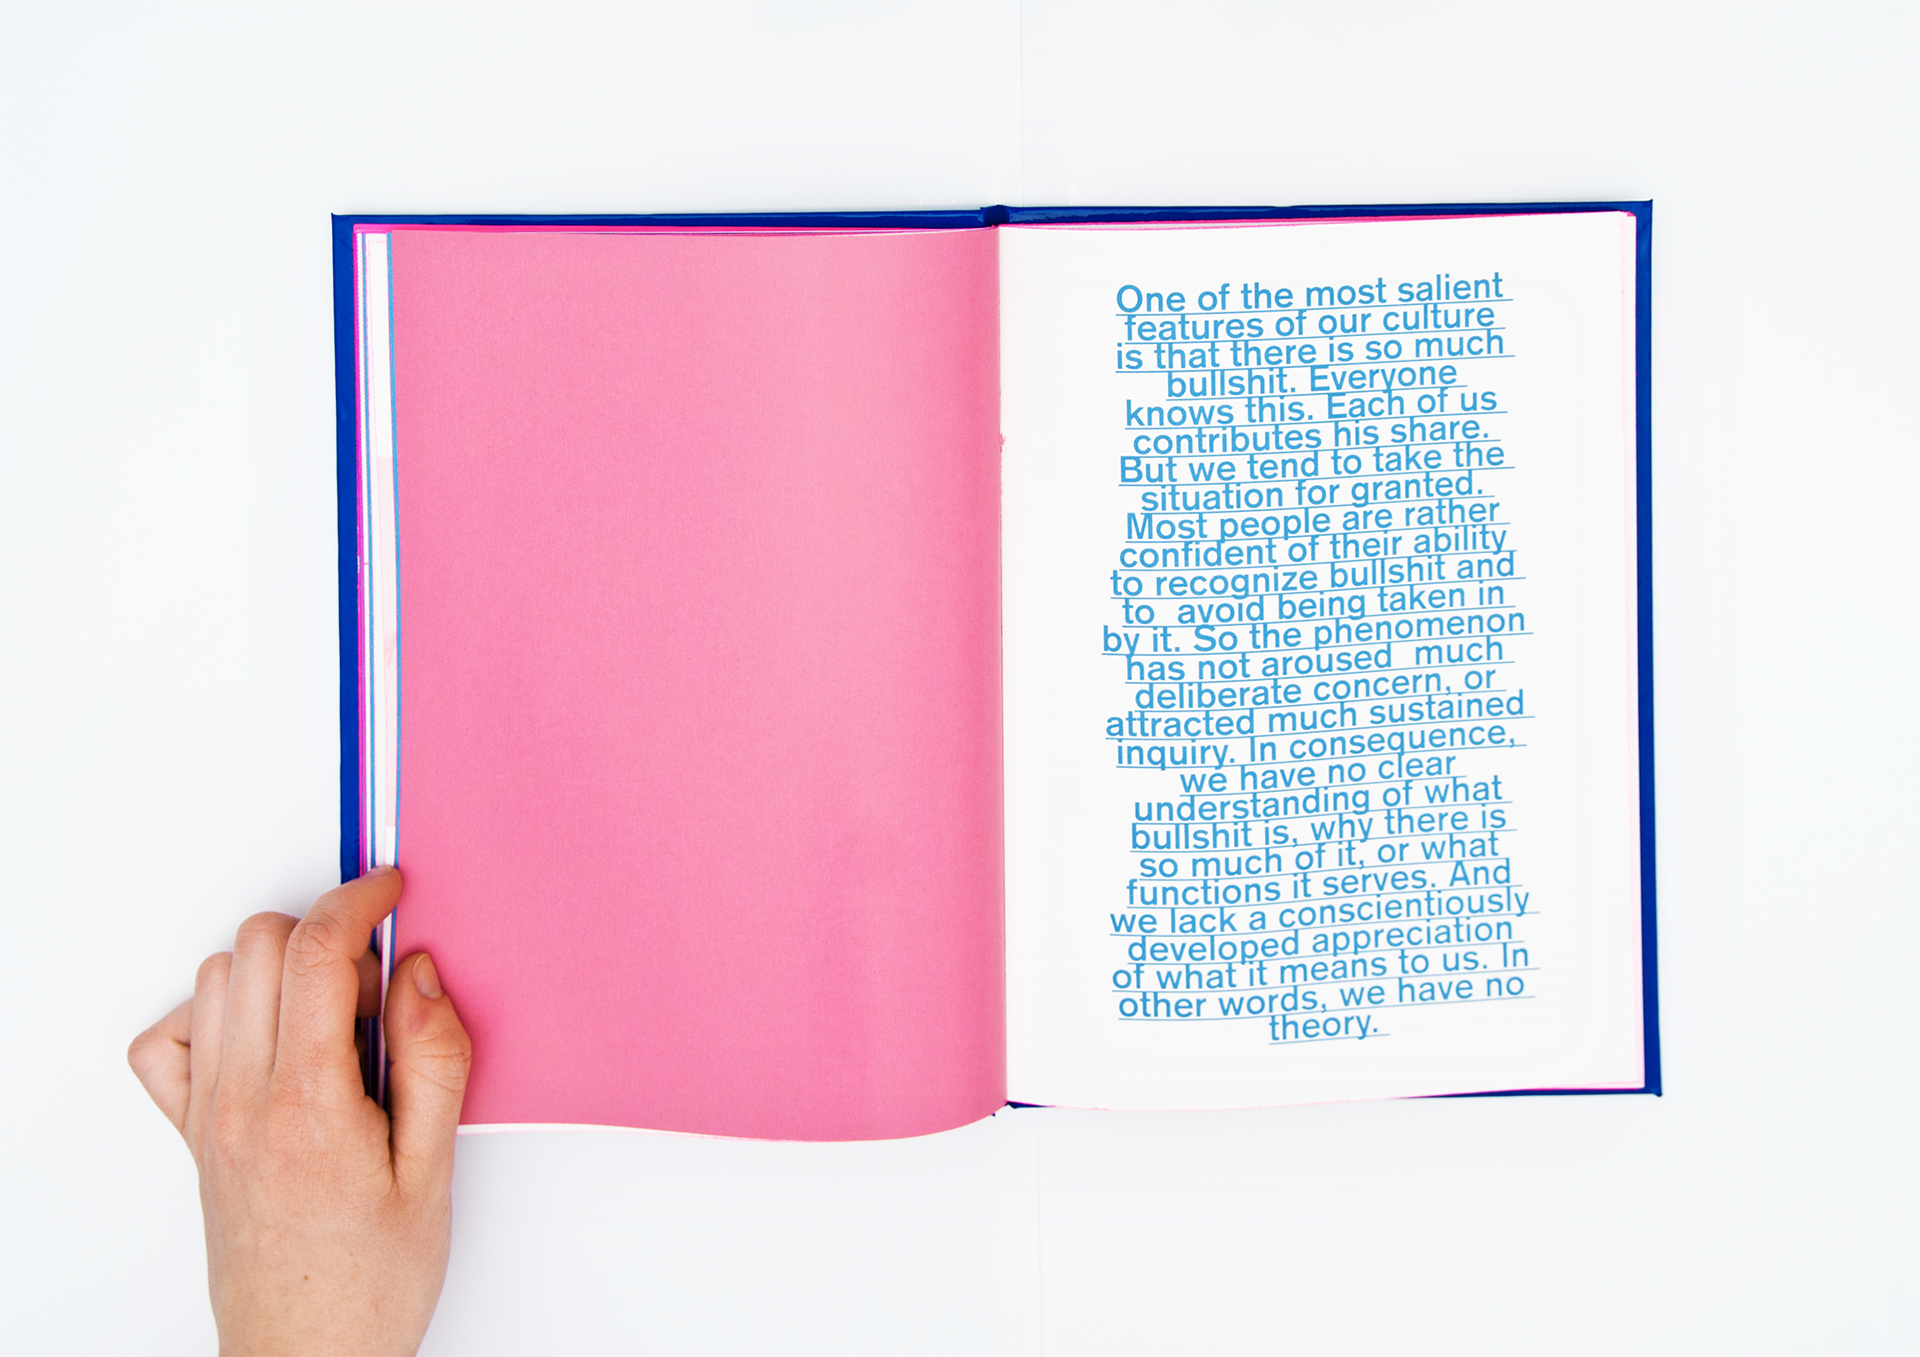 One of the most salient
features of our culture
is that there is so much
bullshit. Everyone
knows this. Each of us
contributes his share.
But we tend to take the
situation for granted.
Most people are rather
confident of their ability
to recognize bullshit and
to  avoid being taken in
by it. So the phenomenon
has not aroused  much
deliberate concern, or
attracted much sustained
inquiry. In consequence,
we have no clear
understanding of what
bullshit is, why there is
so much of it, or what
functions it serves. And
we lack a conscientiously
developed appreciation
of what it means to us. In
other words, we have no
theory.